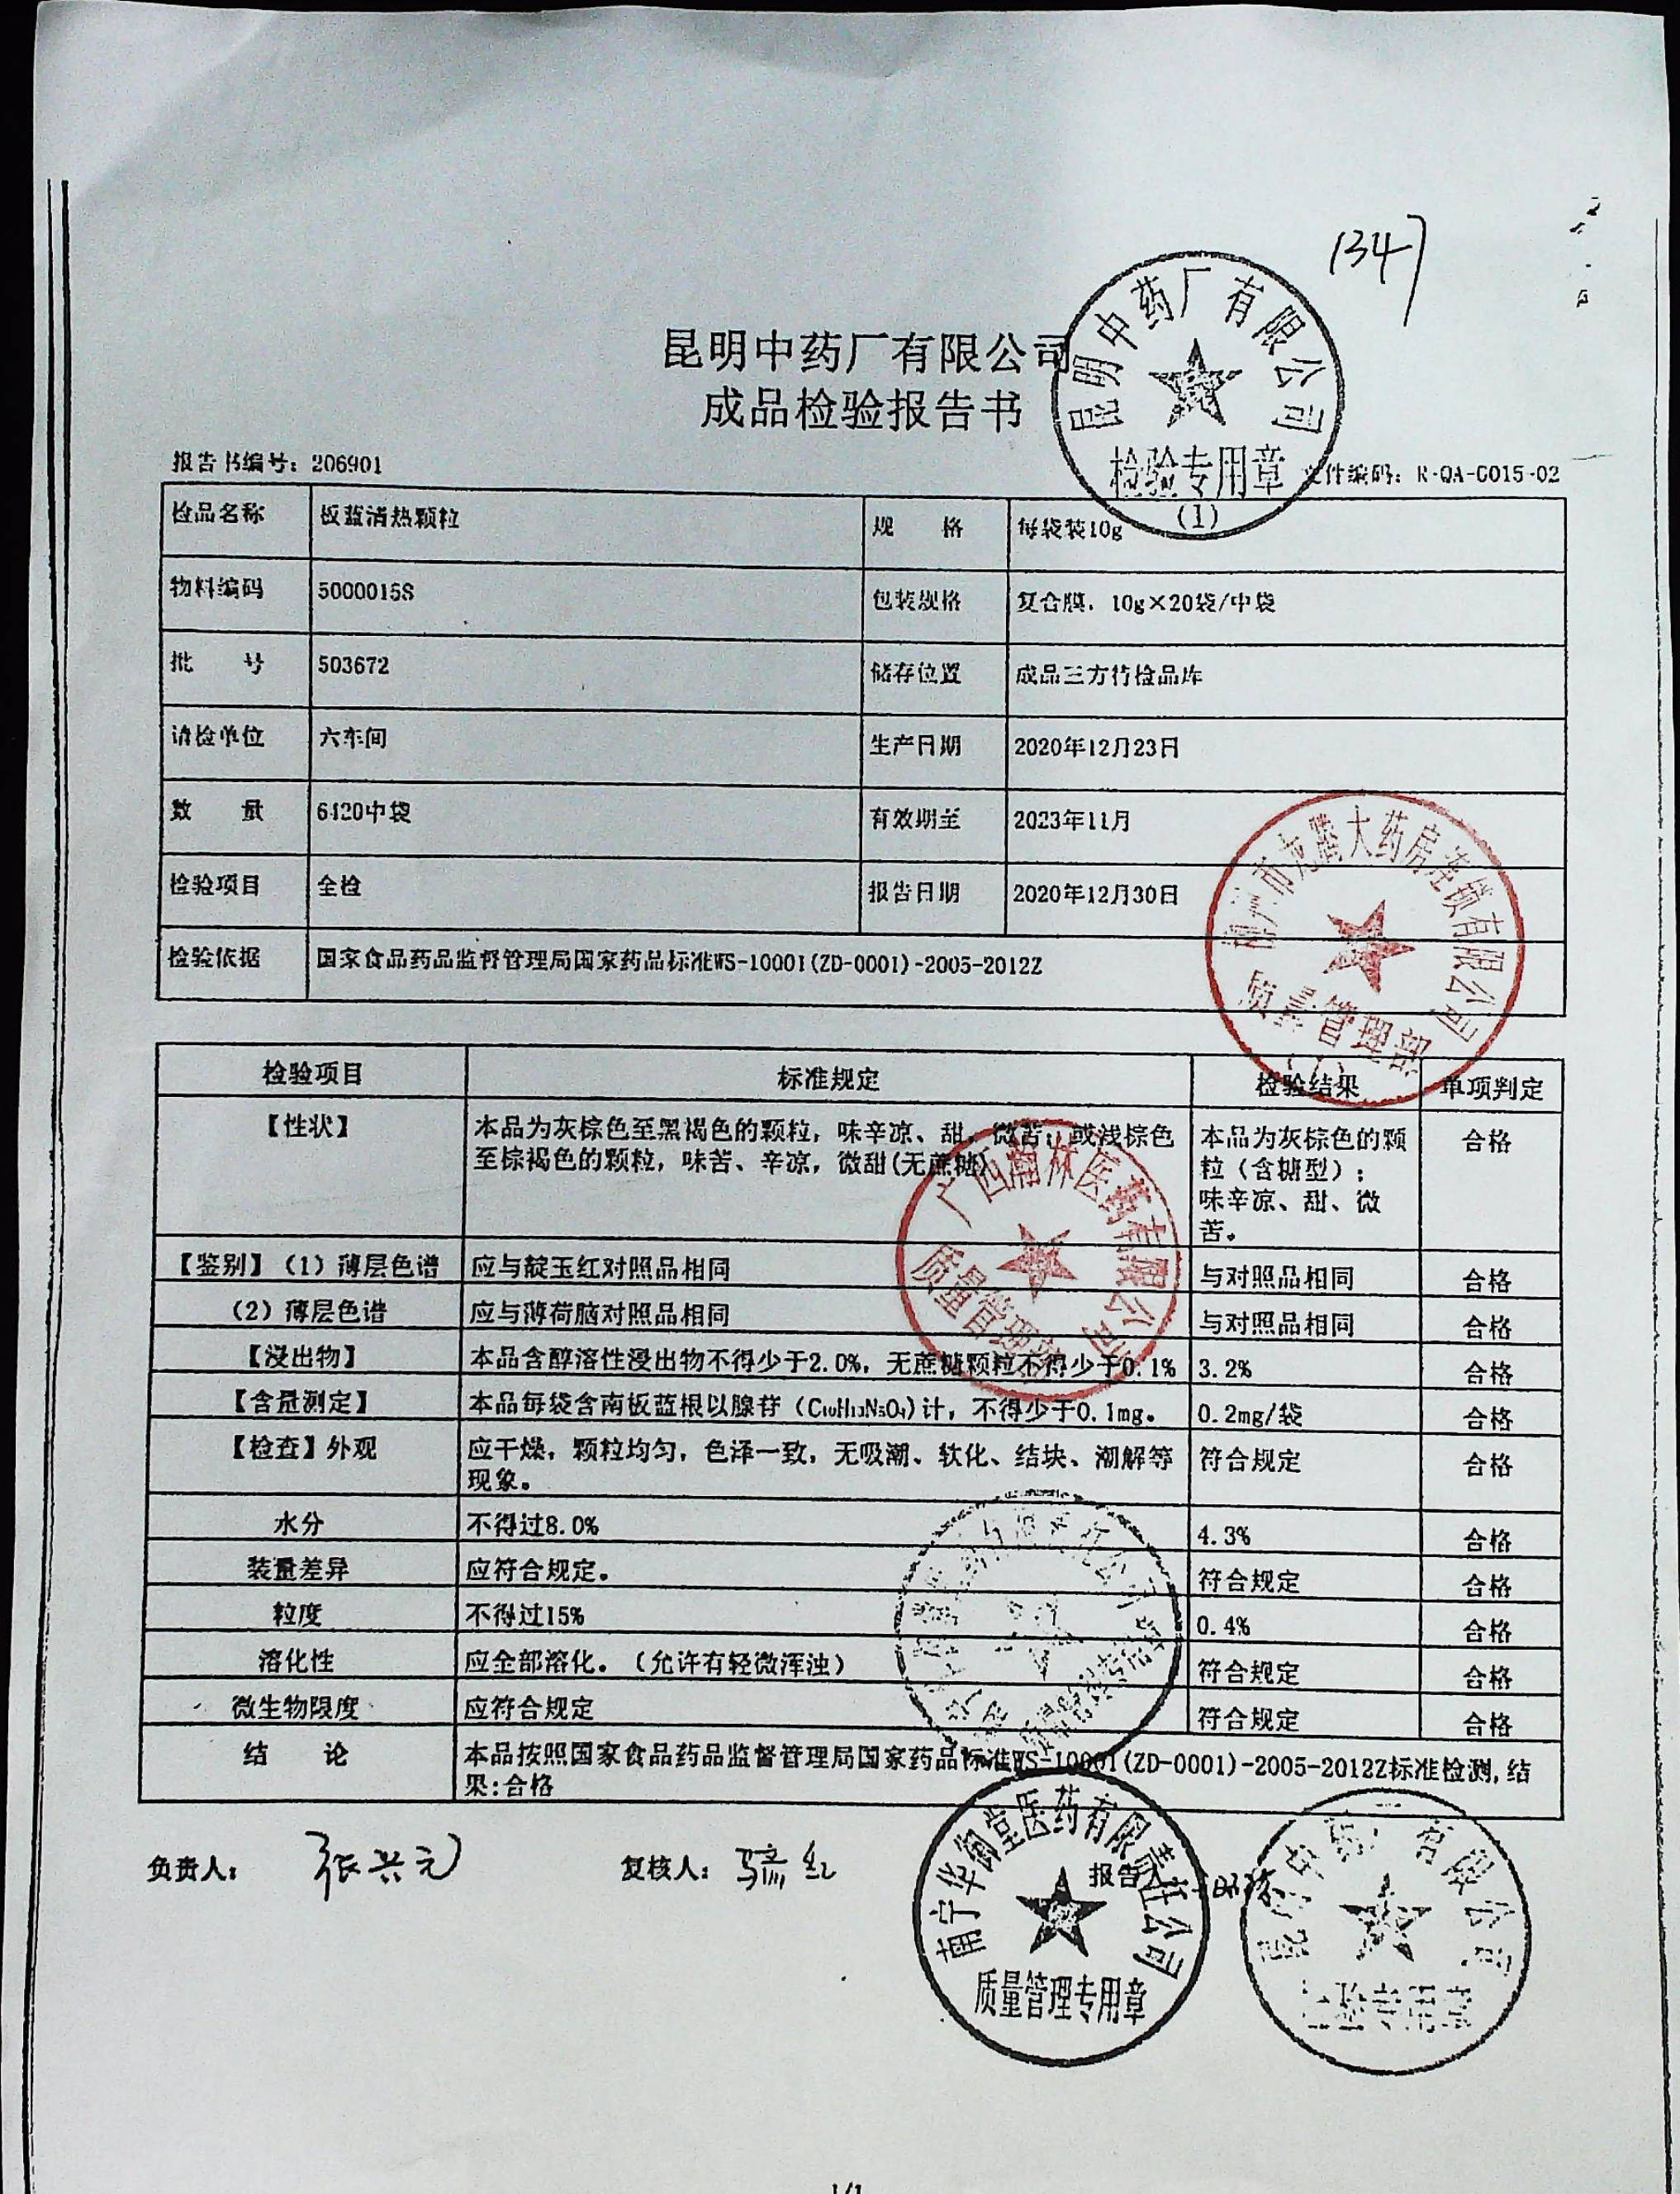 1347
昆明中药厂有限公司
成品检验报告书
昆明中药厂有限公司
检验专用章
(1)
报告书编号：206901 文件编码：R-QA-G015-02
检品名称 板蓝清热颗粒 规 格 每袋装10g
物料编码 5000015S 包装规格 复合膜，10g×20袋/中袋
批 号 503672 储存位置 成品三方待检品库
请检单位 六车间 生产日期 2020年12月23日
数 量 6420中袋 有效期至 2023年11月
检验项目 全检 报告日期 2020年12月30日
检验依据 国家食品药品监督管理局国家药品标准WS-10001(ZD-0001)-2005-2012Z
市龙腾大药房连锁有限公司
质量管理部
检验项目 标准规定 检验结果 单项判定
【性状】 本品为灰棕色至黑褐色的颗粒，味辛凉、甜，微苦；或浅棕色 本品为灰棕色的颗 合格
至棕褐色的颗粒，味苦、辛凉，微甜(无蔗糖) 粒（含糖型）；
味辛凉、甜、微
苦。
广西瀚林医药有限公司
质量管理部
【鉴别】（1）薄层色谱 应与靛玉红对照品相同 与对照品相同 合格
（2）薄层色谱 应与薄荷脑对照品相同 与对照品相同 合格
【浸出物】 本品含醇溶性浸出物不得少于2.0%，无蔗糖颗粒不得少于0.1% 3.2% 合格
【含量测定】 本品每袋含南板蓝根以腺苷（C₁₀H₁₃N₅O₄）计，不得少于0.1mg。 0.2mg/袋 合格
【检查】外观 应干燥，颗粒均匀，色泽一致，无吸潮、软化、结块、潮解等 符合规定 合格
现象。
水分 不得过8.0% 4.3% 合格
装量差异 应符合规定。 符合规定 合格
粒度 不得过15% 0.4% 合格
溶化性 应全部溶化。（允许有轻微浑浊） 符合规定 合格
微生物限度 应符合规定 符合规定 合格
结 论 本品按照国家食品药品监督管理局国家药品标准WS-10001(ZD-0001)-2005-2012Z标准检测,结
果:合格
负责人： 张兴元 复核人： 骆红 报告
南宁华御堂医药有限责任公司
质量管理专用章
有限公司
检验专用章
1/1